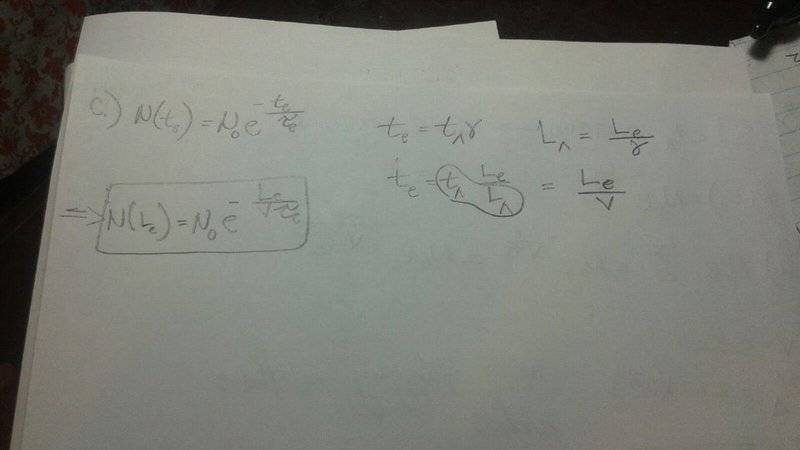 c.) N(t_e) = N_0 e^{-\frac{t_e}{\tau_e}} t_e = t_Λ γ L_Λ = \frac{L_e}{γ}
t_e = t_Λ \frac{L_e}{L_Λ} = \frac{L_e}{V}
=> N(L_e) = N_0 e^{-\frac{L_e}{V\tau_e}}